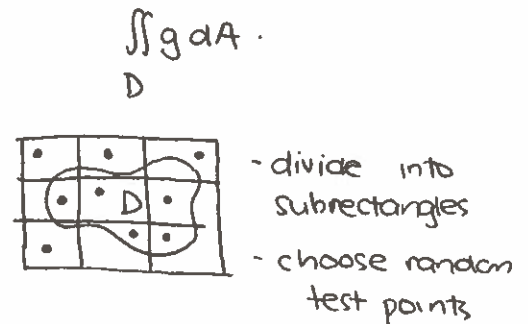 ∬ g dA.
D
D
- divide into
subrectangles
- choose random
test points